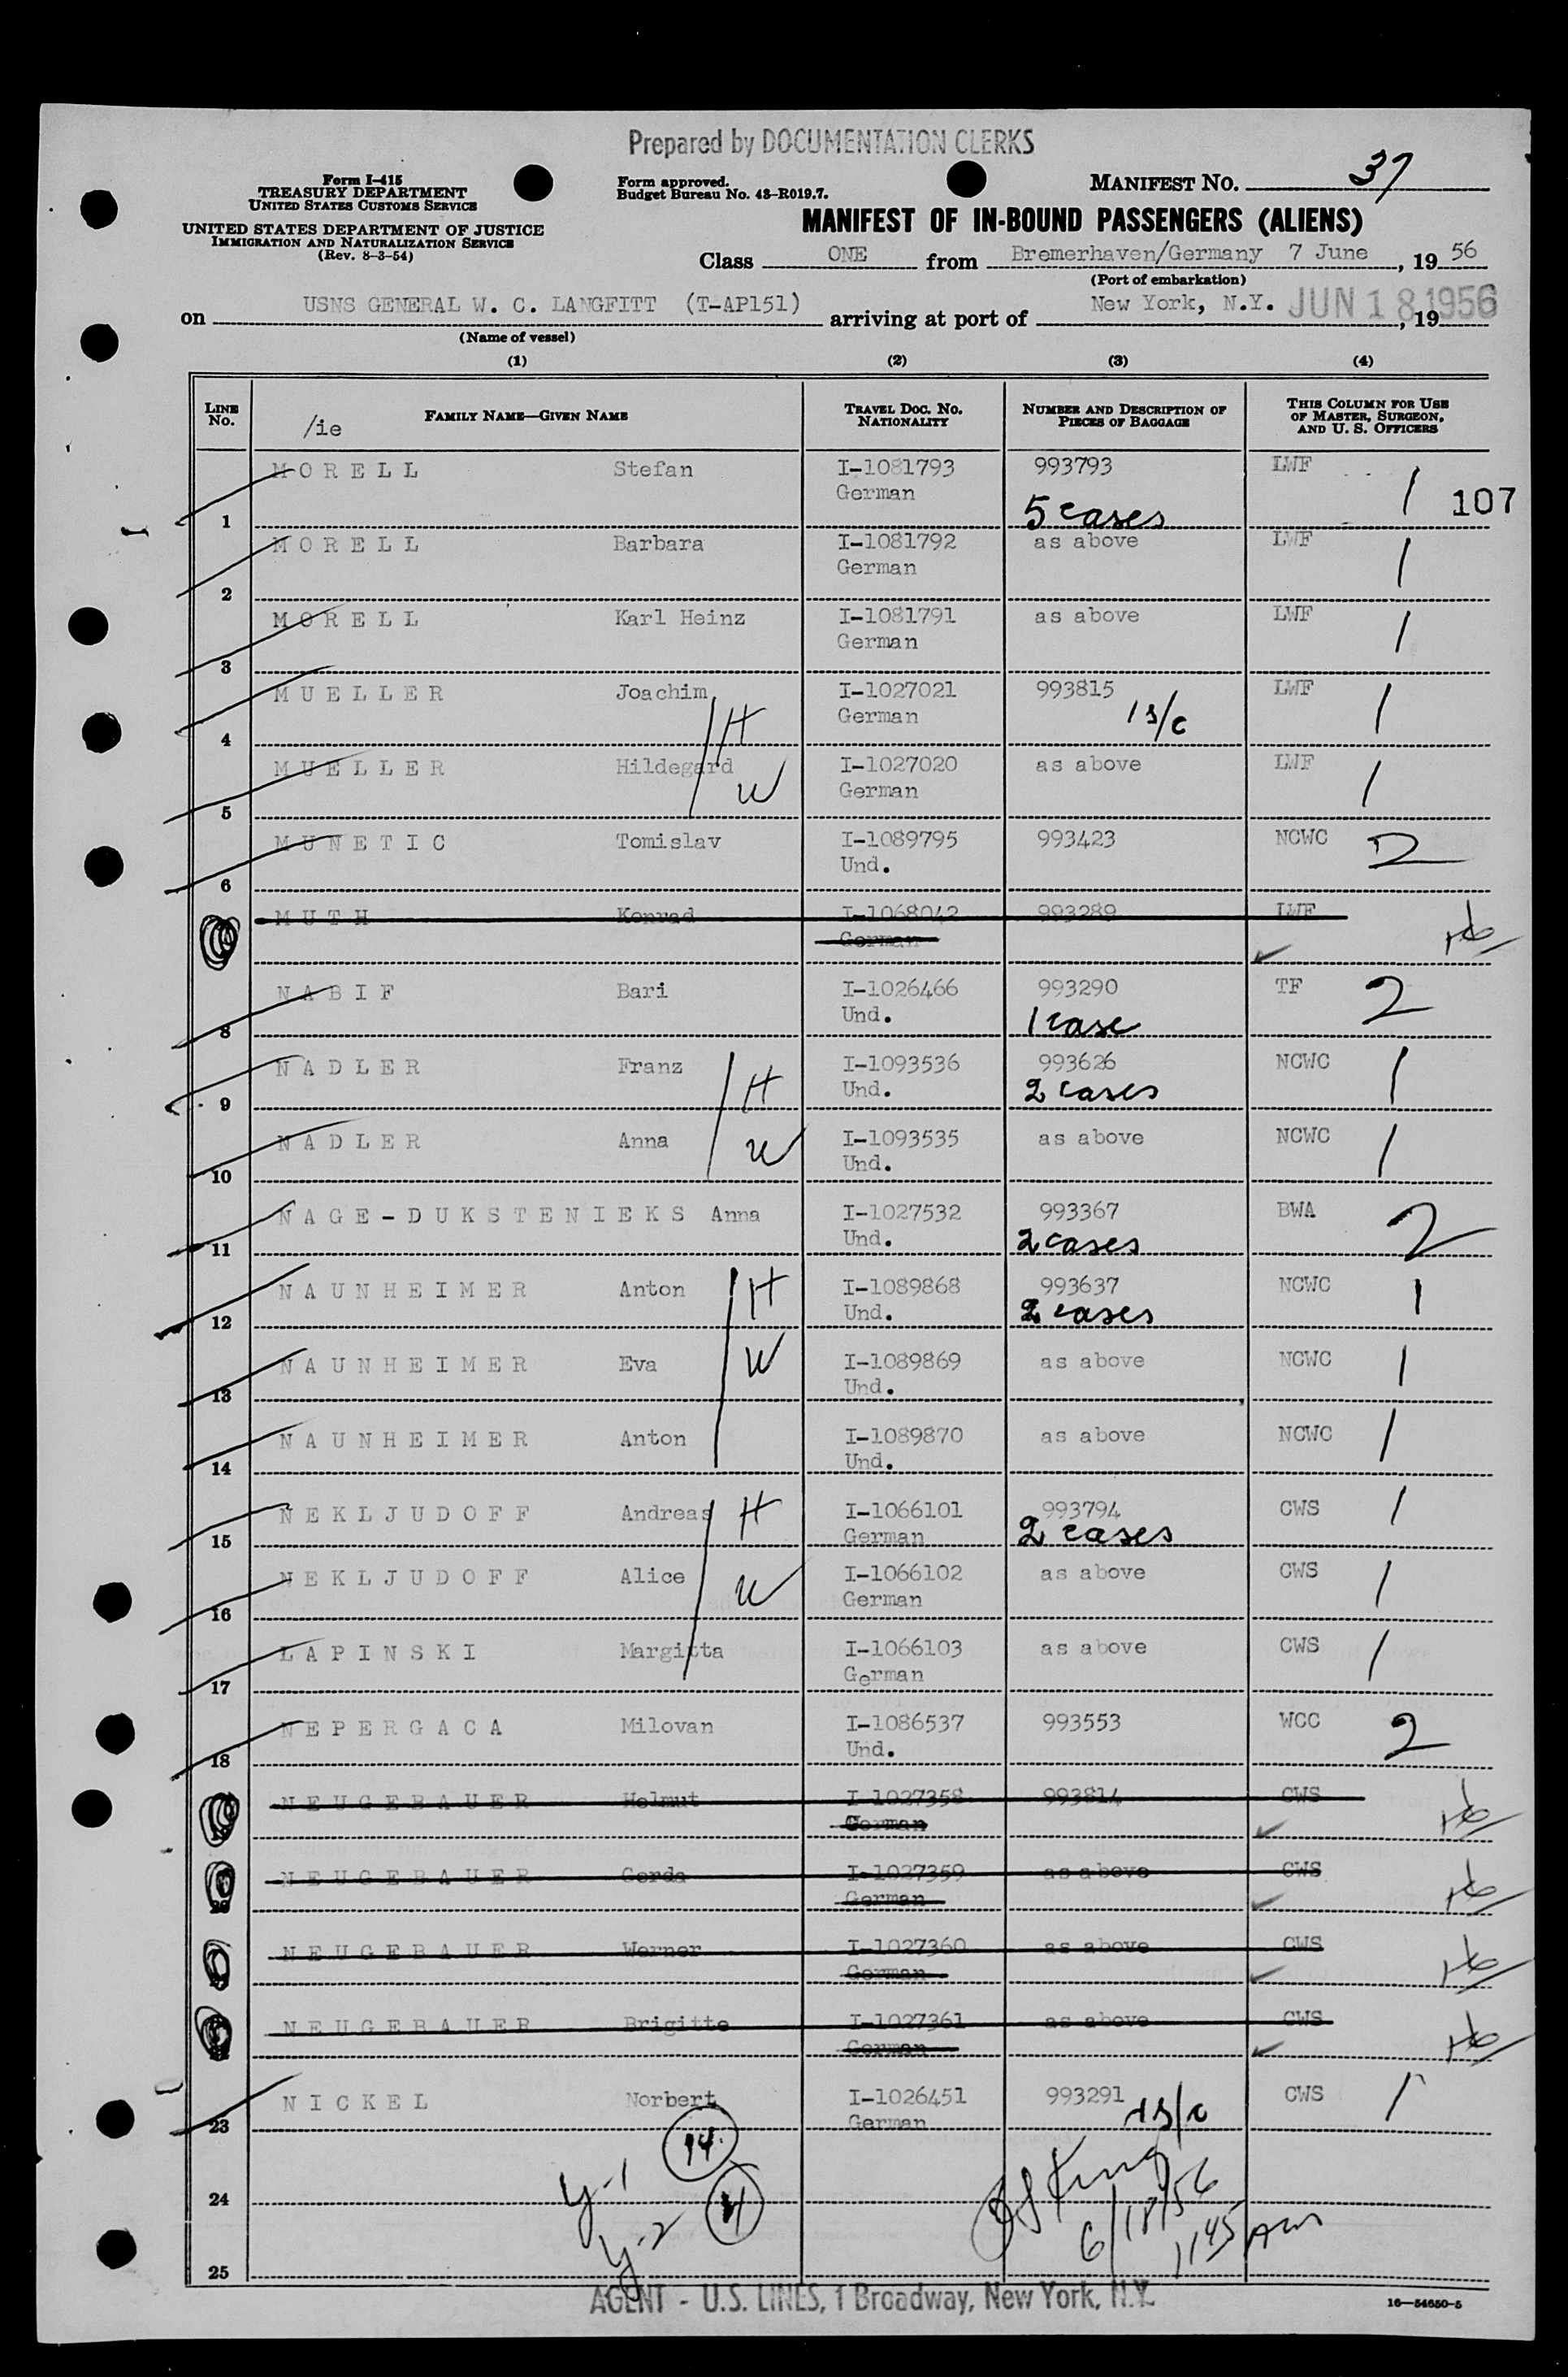 Prepared by DOCUMENTATION CLERKS
Form I-415
TREASURY DEPARTMENT
UNITED STATES CUSTOMS SERVICE
UNITED STATES DEPARTMENT OF JUSTICE
IMMIGRATION AND NATURALIZATION SERVICE
(Rev. 8-3-54)
Form approved.
Budget Bureau No. 43-R019.7.
MANIFEST NO. 37
MANIFEST OF IN-BOUND PASSENGERS (ALIENS)
Class ONE from Bremerhaven/Germany 7 June, 19 56
(Port of embarkation)
on USNS GENERAL W. C. LANGFITT (T-AP151) arriving at port of New York, N.Y. JUN 18 1956, 19
(Name of vessel)
(1) (2) (3) (4)
LINE NO. /ie FAMILY NAME—GIVEN NAME TRAVEL DOC. NO. NATIONALITY NUMBER AND DESCRIPTION OF PIECES OF BAGGAGE THIS COLUMN FOR USE OF MASTER, SURGEON, AND U. S. OFFICERS
MORELL Stefan I-1081793 993793 LWF
1 German 5 cases 1 107
MORELL Barbara I-1081792 as above LWF
2 German 1
MORELL Karl Heinz I-1081791 as above LWF
3 German 1
MUELLER Joachim I-1027021 993815 LWF
4 H German 1 s/c 1
MUELLER Hildegard I-1027020 as above LWF
5 W German 1
MUNETIC Tomislav I-1089795 993423 NCWC 2
6 Und.
MUTH Konrad I-1068042 993289 LWF
German
NABIF Bari I-1026466 993290 TF 2
8 Und. 1 case
NADLER Franz I-1093536 993626 NCWC 1
9 H Und. 2 cases
NADLER Anna I-1093535 as above NCWC 1
10 W Und.
NAGE-DUKSTENIEKS Anna I-1027532 993367 BWA 2
11 Und. 2 cases
NAUNHEIMER Anton H I-1089868 993637 NCWC 1
12 Und. 2 cases
NAUNHEIMER Eva W I-1089869 as above NCWC 1
13 Und.
NAUNHEIMER Anton I-1089870 as above NCWC 1
14 Und.
NEKLJUDOFF Andreas H I-1066101 993794 CWS 1
15 German 2 cases
NEKLJUDOFF Alice W I-1066102 as above CWS 1
16 German
LAPINSKI Margitta I-1066103 as above CWS 1
17 German
NEPERGACA Milovan I-1086537 993553 WCC 2
18 Und.
NEUGEBAUER Helmut I-1027358 993814 CWS
German
NEUGEBAUER Gerda I-1027359 as above CWS
20 German
NEUGEBAUER Werner I-1027360 as above CWS
German
NEUGEBAUER Brigitte I-1027361 as above CWS
German
NICKEL Norbert I-1026451 993291 1 s/c CWS 1
23 German
y-1 14
24 y-2 4 King 6/18/56
25 1145 Am
AGENT - U.S. LINES, 1 Broadway, New York, N.Y.
16—54650-5